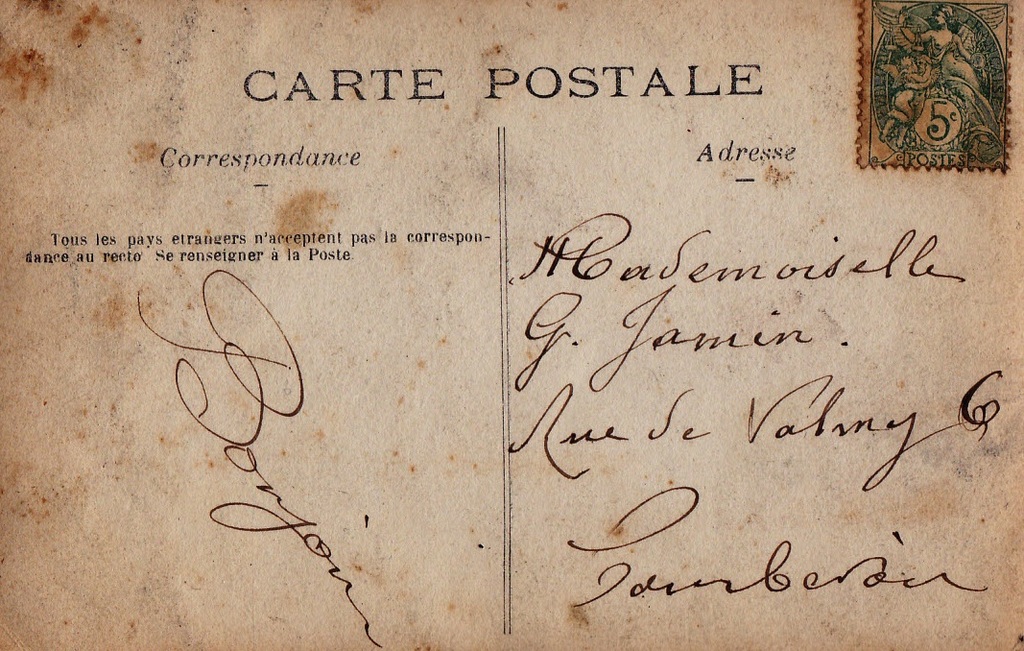 CARTE POSTALE
Correspondance
Adresse
Tous les pays etrangers n'acceptent pas la correspon-
dance au recto Se renseigner à la Poste
Bonjour
Mademoiselle
G. Jamin.
Rue de Valmy 6
5c
POSTES